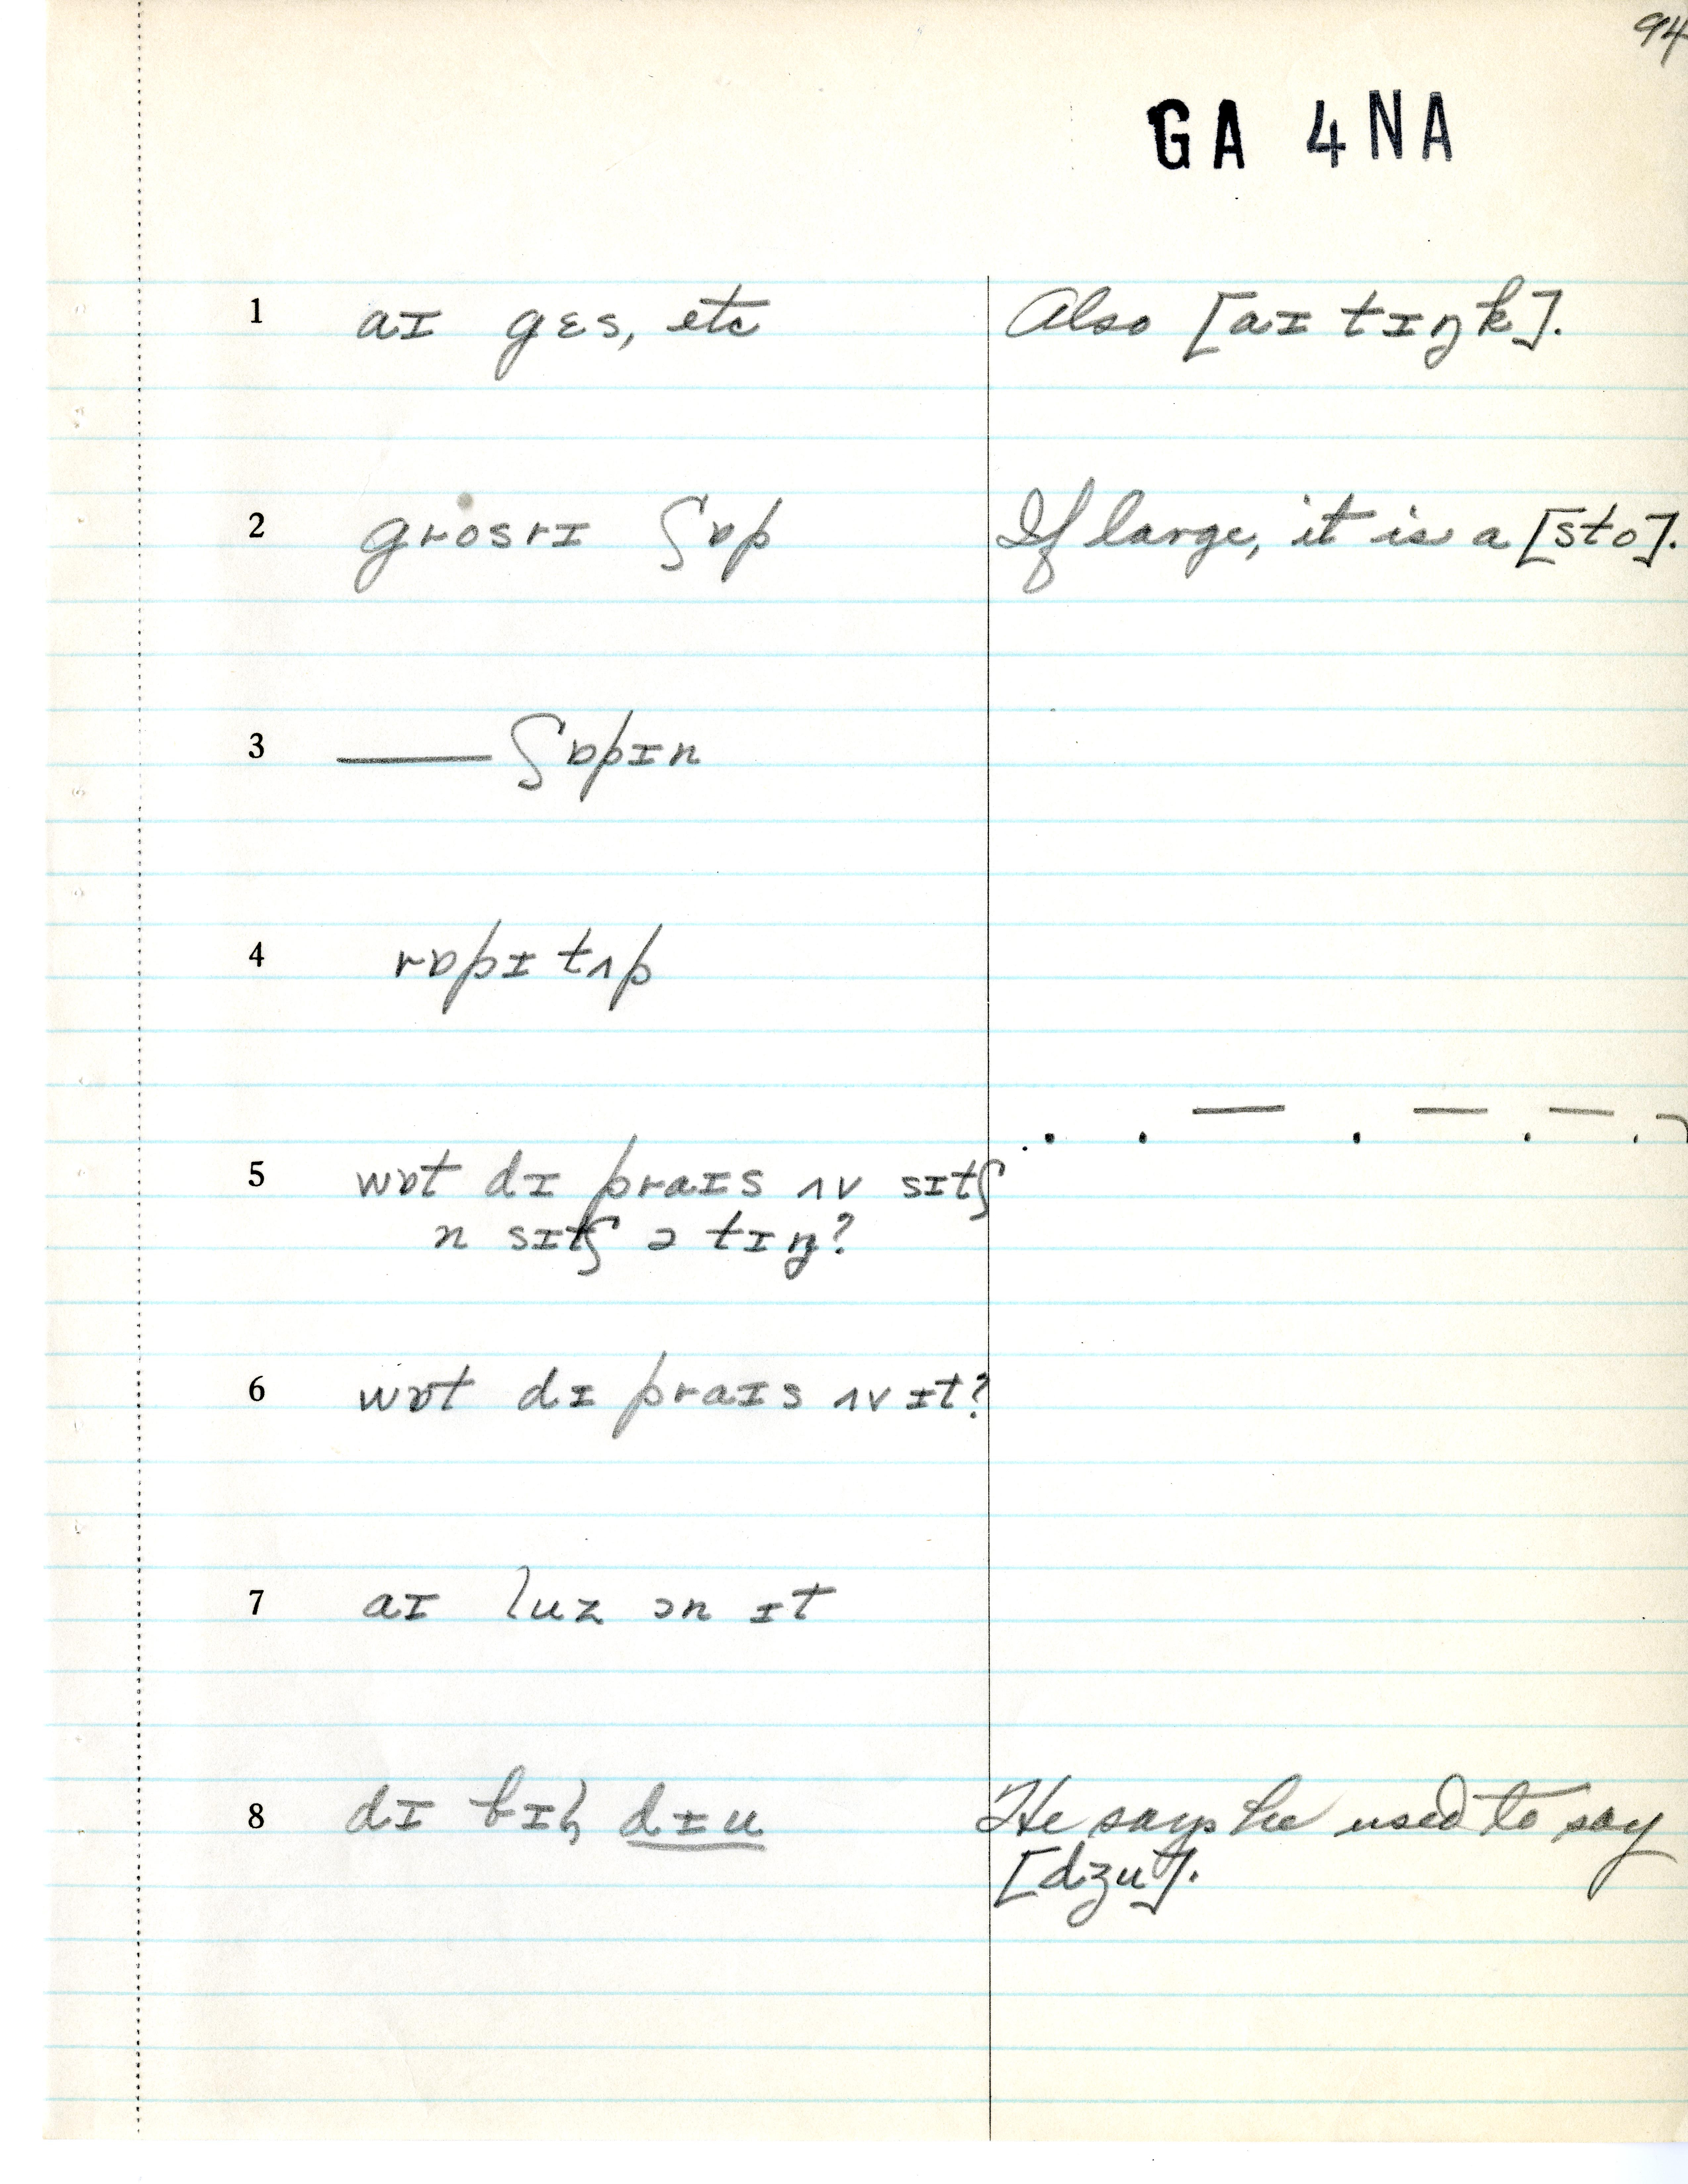 94
GA 4NA
1 aɪ gɛs, etc Also [aɪ tɪŋk].
2 grosrɪ ʃɒp If large, it is a [sto].
3 —— ʃɒpɪn
4 rɒpɪ tʌp
5 wɒt dɪ praɪs ʌv sɪtʃ
n sɪtʃ ə tɪŋ?
6 wɒt dɪ praɪs ʌv ɪt?
7 aɪ luz ɔn ɪt
8 dɪ dɪu He says he used to say
[dʒu].